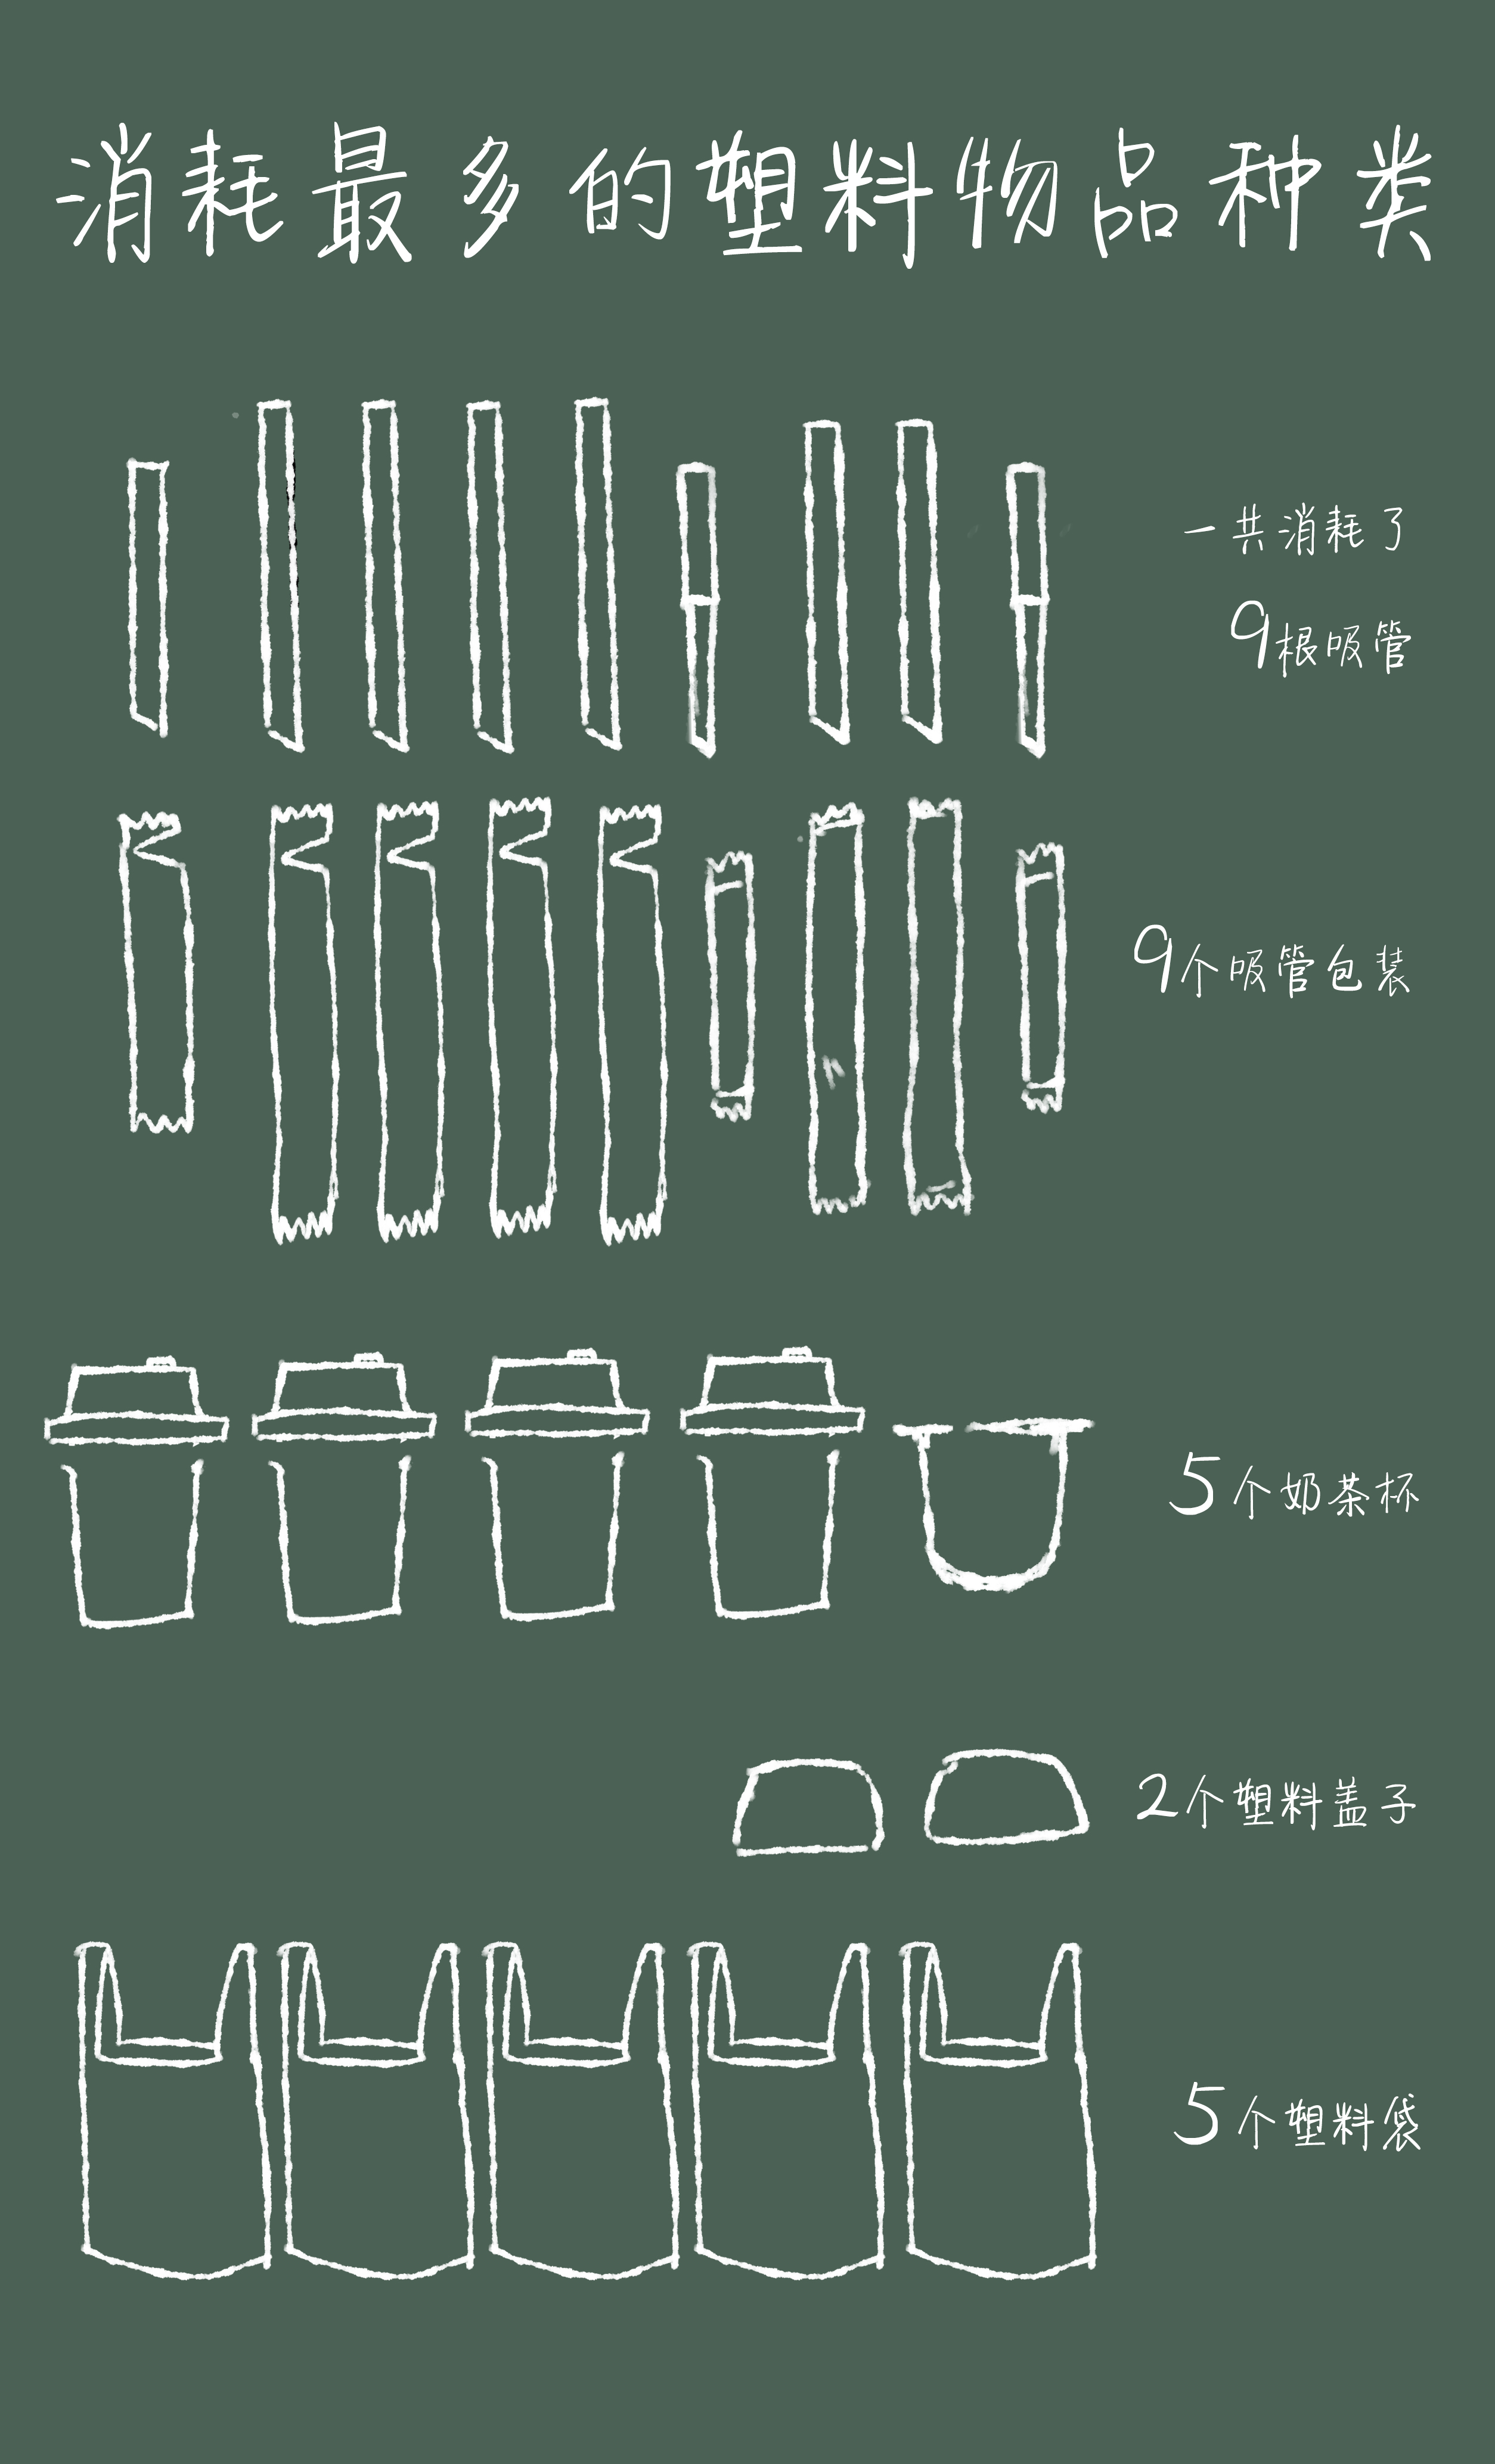 消耗最多的塑料物品种类
一共消耗了
9根吸管
9个吸管包装
5个奶茶杯
2个塑料盖子
5个塑料袋